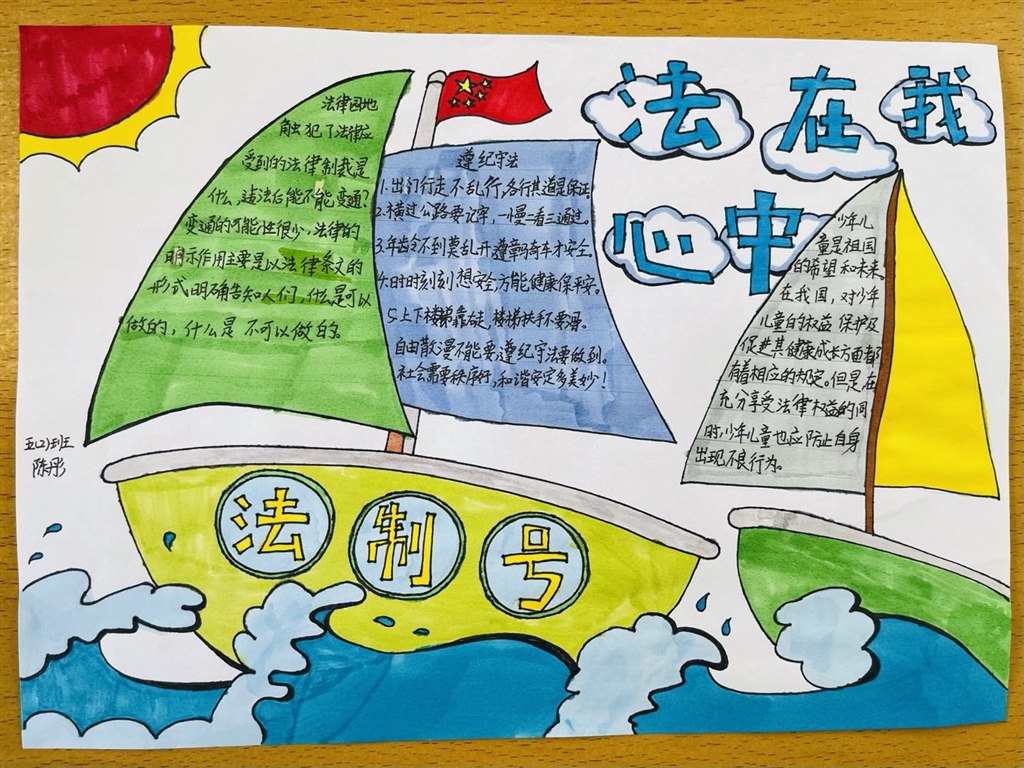 法在我
心中
法律园地
触犯了法律应
受到的法律制裁是
什么,违法后能不能变通?
变通的可能性很少,法律的
明示作用主要是以法律条文的
形式明确告知人们,什么是可以
做的,什么是不可以做的。
遵纪守法
1.出门行走不乱行,各行其道是保证。
2.横过公路要记牢,一慢二看三通过。
3.年龄不到莫乱开遵章骑车才安全。
4.时时刻刻想安全方能健康保平安。
5.上下楼梯靠右走,楼梯扶手不要滑。
自由散漫不能要遵纪守法要做到。
社会需要秩序好,和谐安定多美妙!
少年儿
童是祖国
的希望和未来。
在我国,对少年
儿童的权益保护及
促进其健康成长方面都
有着相应的规定。但是,在
充分享受法律权益的同
时,少年儿童也应防止自身
出现不良行为。
五(2)班
陈彤
法制号